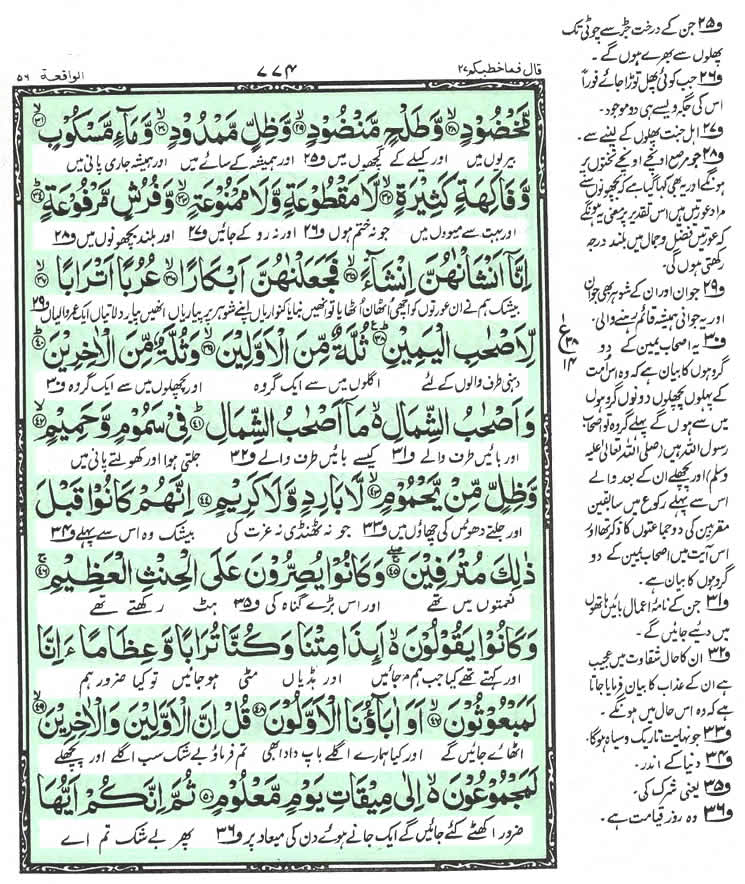 قال فما خطبکم ۲۷
۷۷۴
الواقعة ۵۶
مَّخْضُوْدٍۙ۝۲۸ وَّ طَلْحٍ مَّنْضُوْدٍۙ۝۲۹ وَّ ظِلٍّ مَّمْدُوْدٍۙ۝۳۰ وَّ مَآءٍ مَّسْكُوْبٍۙ۝۳۱
بیریوں میں اور کیلے کے گچھوں میں و۲۵ اور ہمیشہ کے سائے میں اور ہمیشہ جاری پانی میں
وَّ فَاكِهَةٍ كَثِیْرَةٍۙ۝۳۲ لَّا مَقْطُوْعَةٍ وَّ لَا مَمْنُوْعَةٍۙ۝۳۳ وَّ فُرُشٍ مَّرْفُوْعَةٍؕ۝۳۴
اور بہت سے میووں میں جو نہ ختم ہوں و۲۶ اور نہ روکے جائیں و۲۷ اور بلند بچھونوں میں و۲۸
اِنَّاۤ اَنْشَاْنٰهُنَّ اِنْشَآءًۙ۝۳۵ فَجَعَلْنٰهُنَّ اَبْكَارًاۙ۝۳۶ عُرُبًا اَتْرَابًاۙ۝۳۷
بیشک ہم نے ان عورتوں کو اچھی اٹھان اٹھایا تو انھیں بنایا کنواریاں اپنے شوہر پر پیاریاں انھیں پیار دلاتیاں ایک عمر والیاں و۲۹
لِّاَصْحٰبِ الْیَمِیْنِؕ۝۳۸ ثُلَّةٌ مِّنَ الْاَوَّلِیْنَۙ۝۳۹ وَ ثُلَّةٌ مِّنَ الْاٰخِرِیْنَؕ۝۴۰
دہنی طرف والوں کے لئے اگلوں میں سے ایک گروہ اور پچھلوں میں سے ایک گروہ و۳۰
وَ اَصْحٰبُ الشِّمَالِ ۙ۬ مَاۤ اَصْحٰبُ الشِّمَالِؕ۝۴۱ فِیْ سَمُوْمٍ وَّ حَمِیْمٍۙ۝۴۲
اور بائیں طرف والے و۳۱ کیسے بائیں طرف والے و۳۲ جلتی ہوا اور کھولتے پانی میں
وَّ ظِلٍّ مِّنْ یَّحْمُوْمٍۙ۝۴۳ لَّا بَارِدٍ وَّ لَا كَرِیْمٍ۝۴۴ اِنَّهُمْ كَانُوْا قَبْلَ
اور جلتے دھوئیں کی چھاؤں میں و۳۳ جو نہ ٹھنڈی نہ عزت کی بیشک وہ اس سے پہلے و۳۴
ذٰلِكَ مُتْرَفِیْنَۚۖ۝۴۵ وَ كَانُوْا یُصِرُّوْنَ عَلَى الْحِنْثِ الْعَظِیْمِۚ۝۴۶
نعمتوں میں تھے اور اس بڑے گناہ کی و۳۵ ہٹ رکھتے تھے
وَ كَانُوْا یَقُوْلُوْنَ ۙ۬ اَىِٕذَا مِتْنَا وَ كُنَّا تُرَابًا وَّ عِظَامًا ءَاِنَّا
اور کہتے تھے کیا جب ہم مرجائیں اور ہڈیاں مٹی ہوجائیں تو کیا ضرور ہم
لَمَبْعُوْثُوْنَۙ۝۴۷ اَوَ اٰبَآؤُنَا الْاَوَّلُوْنَ۝۴۸ قُلْ اِنَّ الْاَوَّلِیْنَ وَ الْاٰخِرِیْنَۙ۝۴۹
اٹھائے جائیں گے اور کیا ہمارے اگلے باپ دادا بھی تم فرماؤ بے شک سب اگلے اور پچھلے
لَمَجْمُوْعُوْنَ ۙ۬ اِلٰى مِیْقَاتِ یَوْمٍ مَّعْلُوْمٍ۝۵۰ ثُمَّ اِنَّكُمْ اَیُّهَا
ضرور اکٹھے کئے جائیں گے ایک جانے ہوئے دن کی میعاد پر و۳۶ پھر بے شک تم اے
ع
۳۸
۱۴
و۲۵ جن کے درخت جڑ سے چوٹی تک
پھلوں سے بھرے ہوں گے۔
و۲۶ جب کوئی پھل توڑا جائے فوراً
اس کی جگہ ویسے ہی دو موجود۔
و۲۷ اہل جنت پھلوں کے لینے سے۔
و۲۸ جو مرصع اونچے اونچے تختوں پر
ہونگے اور یہ بھی کہا گیا ہے کہ بچھونوں سے
مراد عورتیں ہیں اس تقدیر پر معنی یہ ہونگے
کہ عورتیں فضل و جمال میں بلند درجہ
رکھتی ہوں گی۔
و۲۹ جوان اور ان کے شوہر بھی جوان
اور یہ جوانی ہمیشہ قائم رہنے والی۔
و۳۰ یہ اصحاب یمین کے دو
گروہوں کا بیان ہے کہ وہ اس امت
کے پہلوں پچھلوں دونوں گروہوں
میں سے ہوں گے پہلے گروہ تو اصحاب
رسول اللہ ہیں (صلی اللہ تعالٰی علیہ
وسلم) اور پچھلے ان کے بعد والے
اس سے پہلے رکوع میں سابقین
مقربین کی دو جماعتوں کا ذکر تھا اور
اس آیت میں اصحاب یمین کے دو
گروہوں کا بیان ہے۔
و۳۱ جن کے نامۂ اعمال بائیں ہاتھوں
میں دیئے جائیں گے۔
و۳۲ ان کا حال شقاوت میں عجیب
ہے ان کے عذاب کا بیان فرمایا جاتا
ہے کہ وہ اس حال میں ہونگے۔
و۳۳ جو نہایت تاریک و سیاہ ہوگا۔
و۳۴ دنیا کے اندر۔
و۳۵ یعنی شرک کی۔
و۳۶ وہ روز قیامت ہے۔